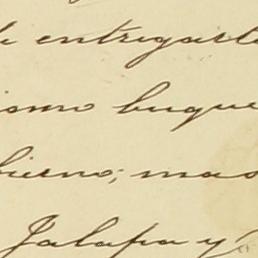 entregarlo
ismo buque
bierno; mas
Jalapa y